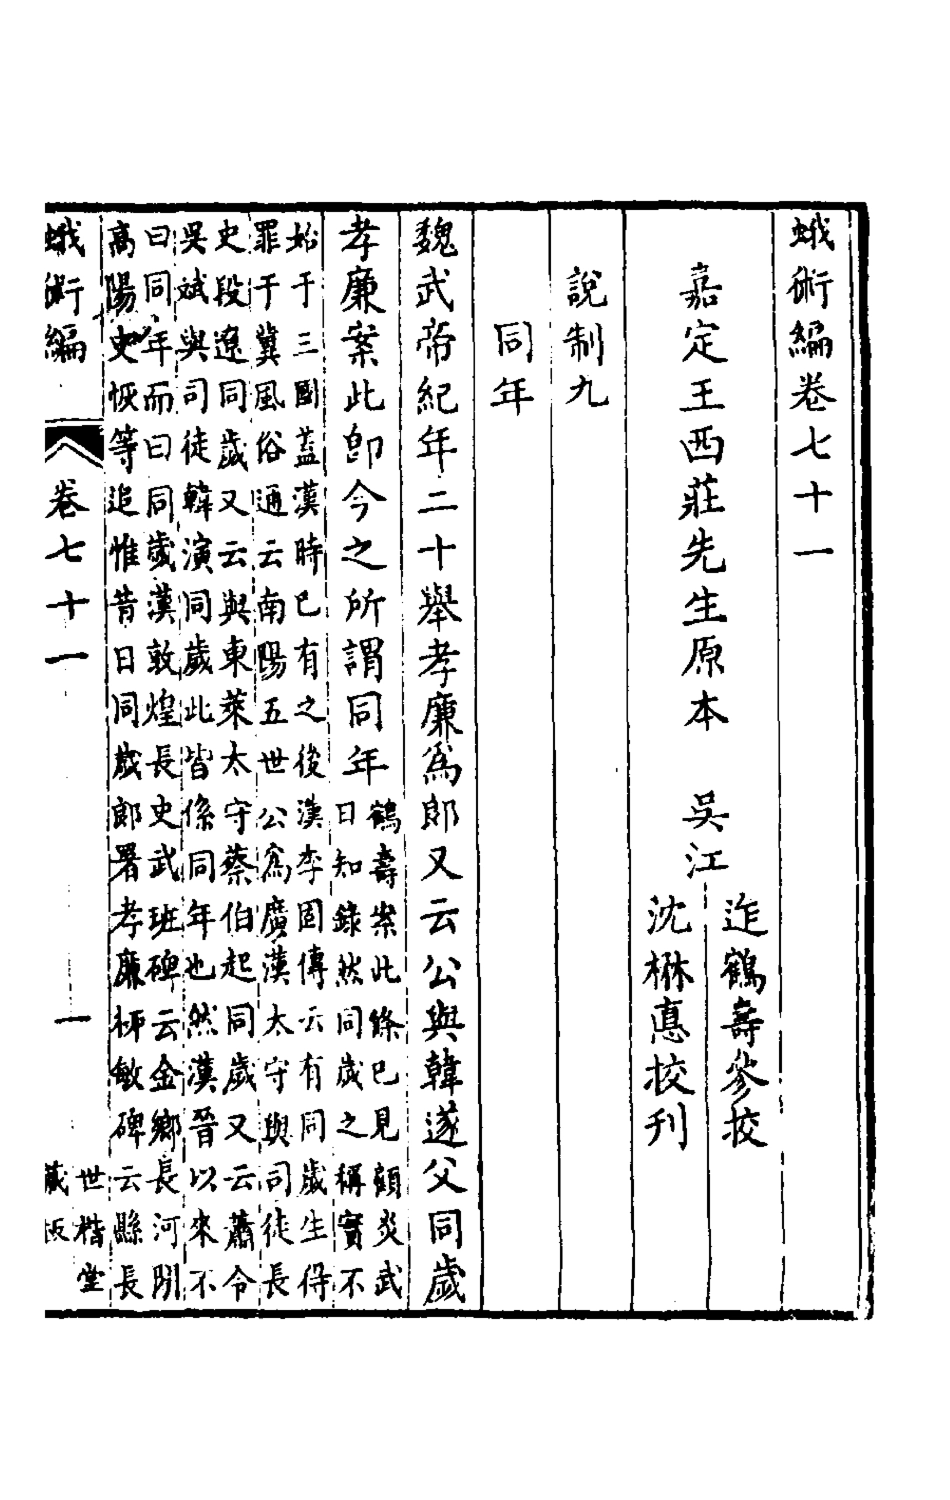 蛾術編卷七十一
嘉定王西莊先生原本　吳江
迮鶴壽參校
沈楙悳挍刋
說制九
同年
魏武帝紀年二十舉孝廉爲郎又云公與韓遂父同歲
孝廉案此卽今之所謂同年
鶴壽案此條已見顧炎武
日知錄然同歲之稱實不
始于三國蓋漢時已有之後漢李固傳云有同歲生得
罪于冀風俗通云南陽五世公爲廣漢太守與司徒長
史段遼同歲又云與東萊太守蔡伯起同歲又云蕭令
吳斌與司徒韓演同歲此皆係同年也然漢晉以來不
曰同年而曰同歲漢敦煌長史武班碑云金鄉長河閒
高陽史恢等追惟昔日同歲郎署孝廉柳敏碑云縣長
蛾術編
卷七十一
一
世楷堂
藏板